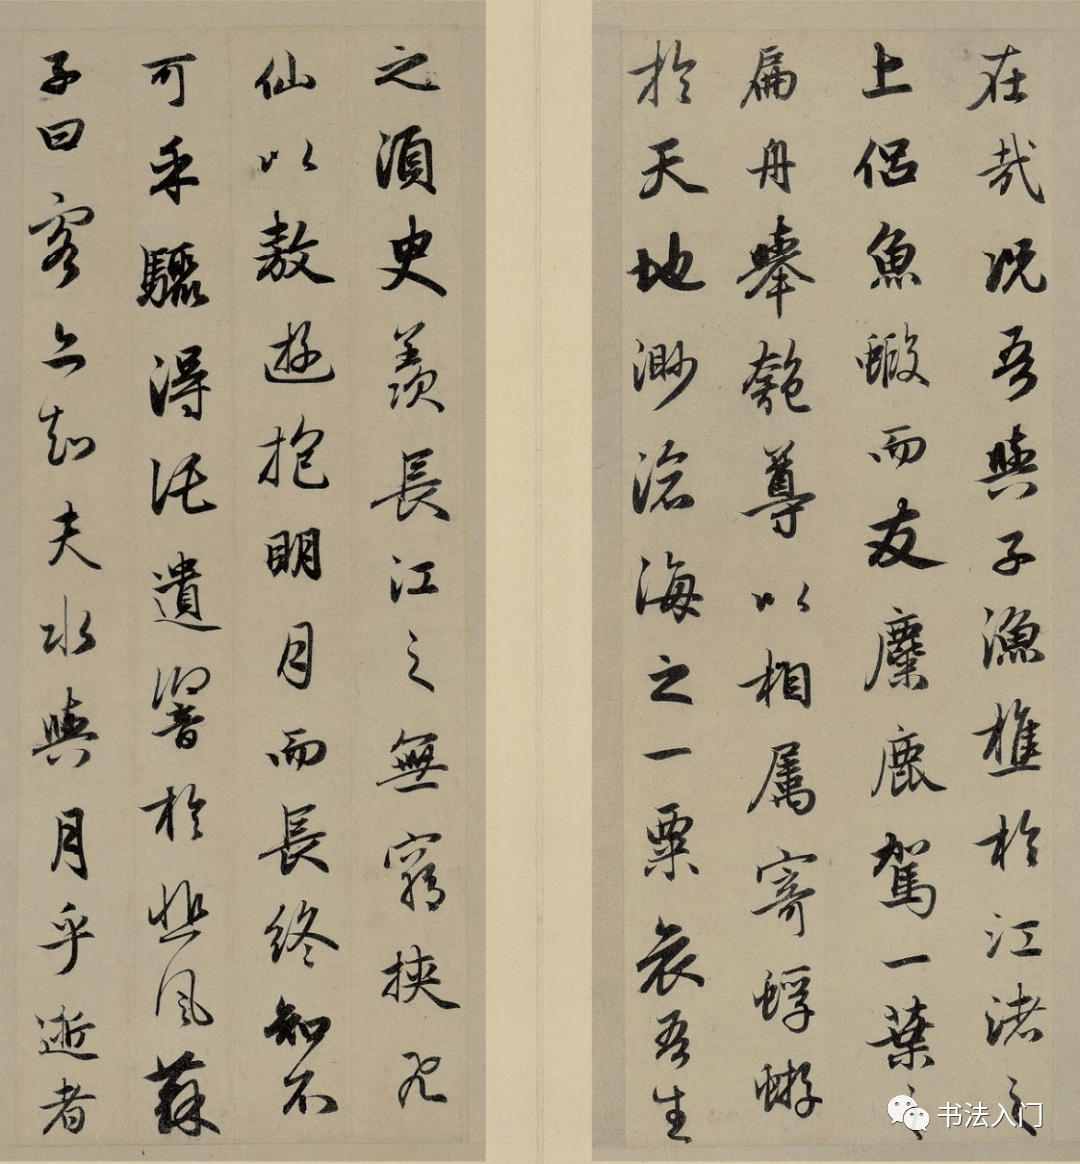 在哉况吾與子漁樵於江渚之
上侶魚蝦而友麋鹿駕一葉之
扁舟舉匏尊以相屬寄蜉蝣
於天地渺滄海之一粟哀吾生
之須臾羨長江之無窮挾飛
仙以敖遊抱明月而長終知不
可乎驟得託遺響於悲風蘇
子曰客亦知夫水與月乎逝者
书法入门